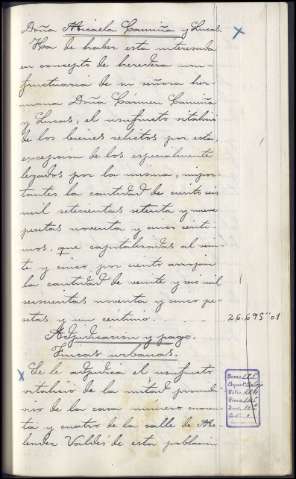 Doña Micaela Camuña y Lucas.
Ha de haber esta interesada
en concepto de heredera usu-
fructuaria de su señora her-
mana Doña Carmen Camuña
y Lucas, el usufructo vitalicio
de los bienes relictos por esta,
excepcion de los especialmente
legados por la misma, impor-
tantes la cantidad de ciento seis
mil setecientas setenta y nueve
pesetas noventa y cinco centi-
mos, que capitalizadas al vein-
te y cinco por ciento arrojan
la cantidad de veinte y seis mil
seiscientas noventa y cinco pe-
setas y un centimo.
26.695"01
Adjudicacion y pago.
Fincas urbanas.
Se le adjudica el usufructo
vitalicio de la mitad proindi-
viso de la casa numero cuaren-
ta y cuatro de la calle de Me-
lendez Valdés de esta poblacion